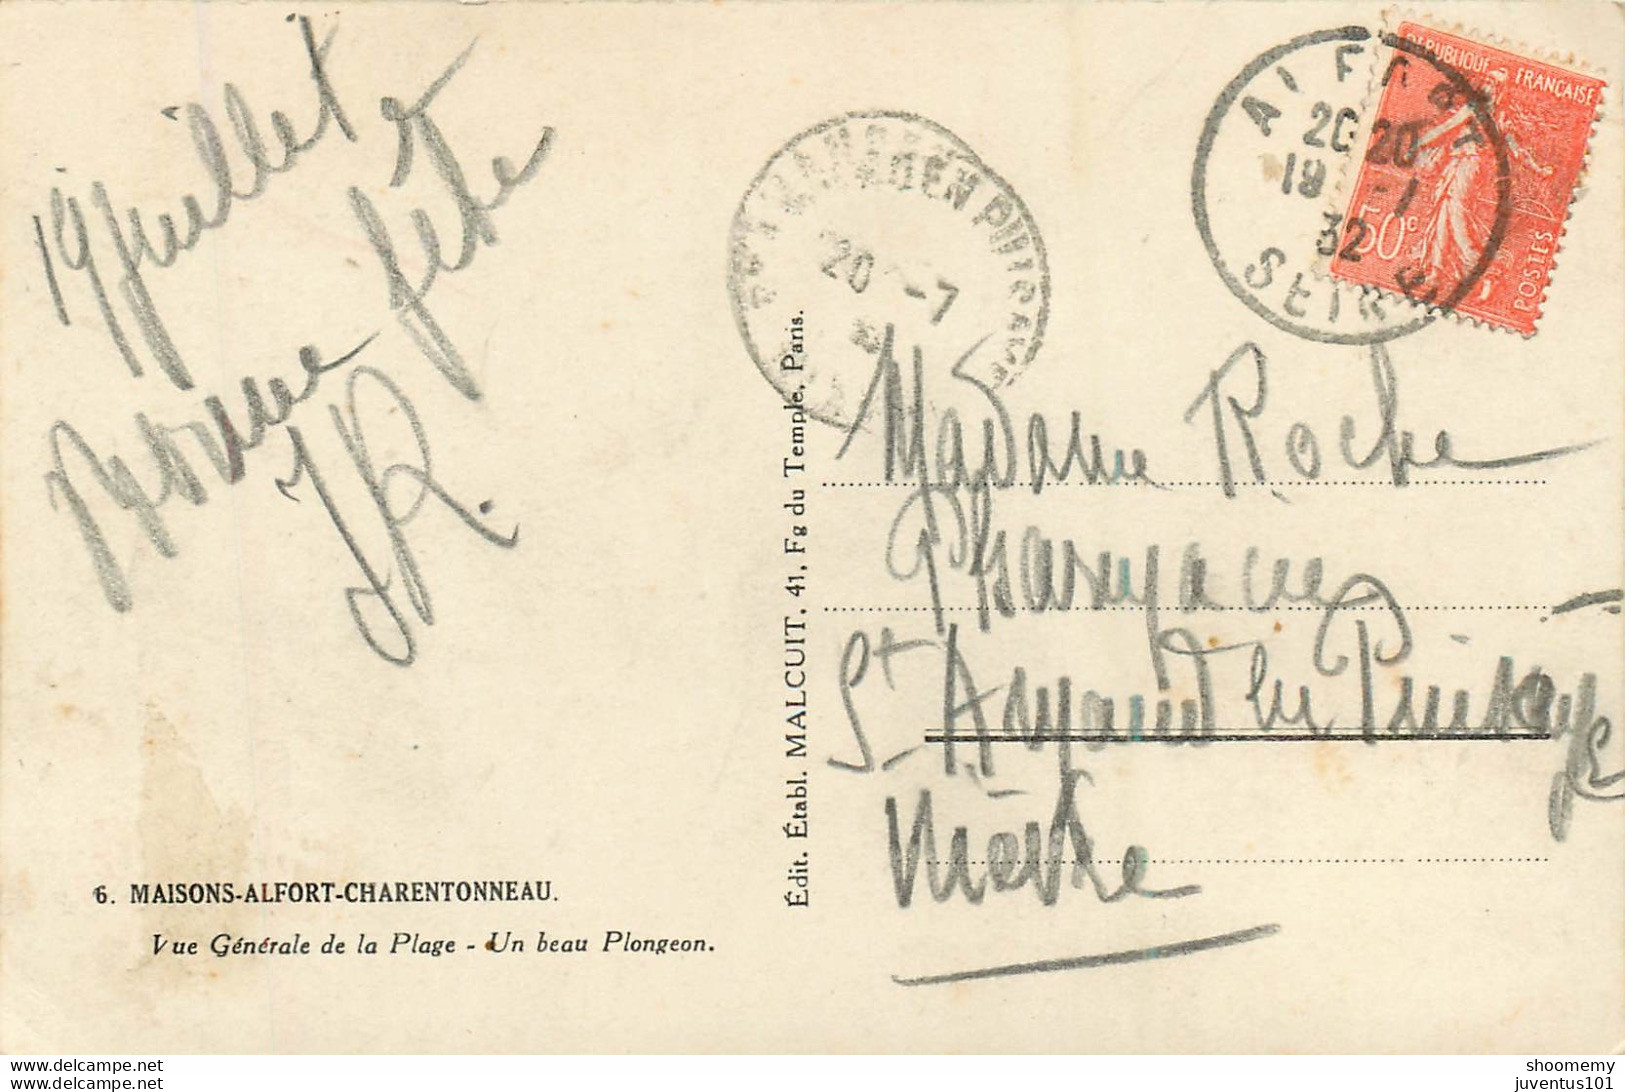 19 juillet
Bonne fête
JR.
6. MAISONS-ALFORT-CHARENTONNEAU.
Vue Générale de la Plage - Un beau Plongeon.
Édit. Établ. MALCUIT, 41, Fg du Temple, Paris.
AMAND EN PUISAYE
20 -7
ALFORT
20 20
19 -7
32
SEINE
RÉPUBLIQUE FRANÇAISE
50c
POSTES
Madame Roche
Pharmacie
St Amand en Puisaye
Nièvre
shoomemy
juventus101